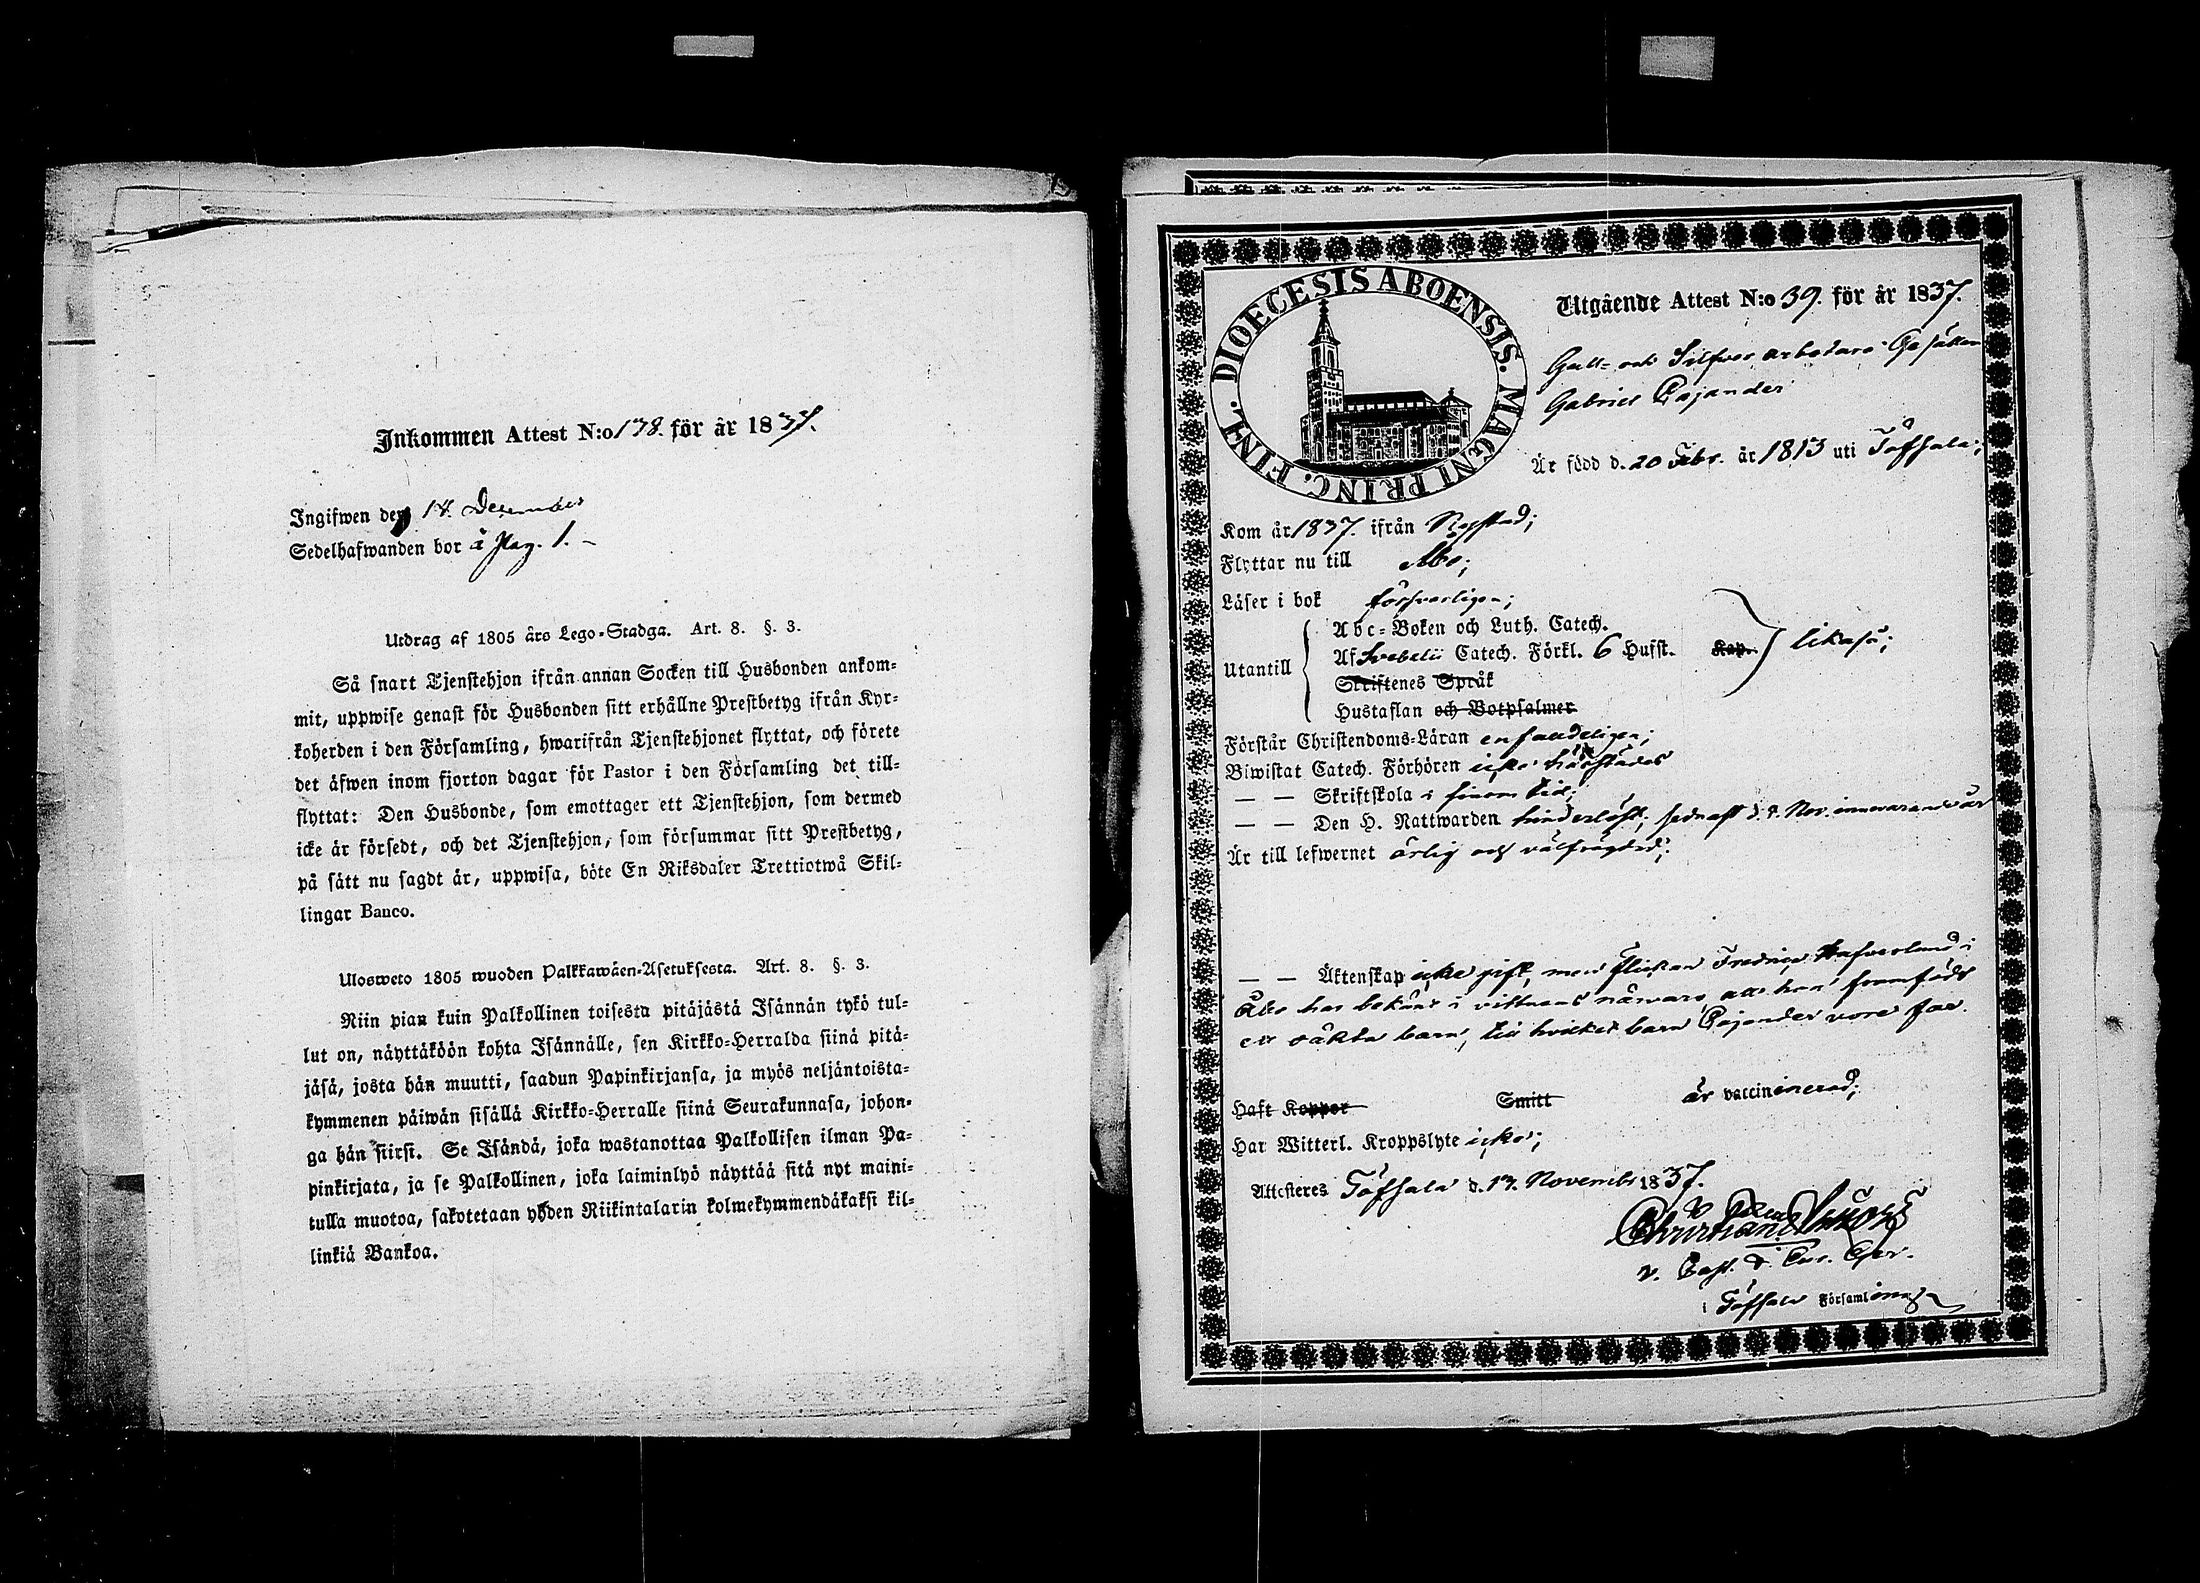 Inkommen Attest N:o 138. för år 1837.
Ingifwen den 18. December
Sedelhafwanden bor å Pag. 1. –
Utdrag af 1805 års Lego-Stadga. Art. 8. §. 3.
Så snart Tjenstehjon ifrån annan Socken till Husbonden ankom-
mit, uppwise genast för Husbonden sitt erhållne Prestbetyg ifrån Kyr-
koherden i den Församling, hwarifrån Tjenstehjonet flyttat, och förete
det äfwen inom fjorton dagar för Pastor i den Församling det till-
flyttat: Den Husbonde, som emottager ett Tjenstehjon, som dermed
icke är försedt, och det Tjenstehjon, som försummar sitt Prestbetyg,
på sätt nu sagdt är, uppwisa, böte En Riksdaler Trettiotwå Skil-
lingar Banco.
Ulosweto 1805 wuoden Palkkawäen-Asetuksesta. Art. 8. §. 3.
Niin pian kuin Palkollinen toisesta pitäjästä Isännän tykö tul-
lut on, näyttäköön kohta Isännälle, sen Kirkko-Herralda siinä pitä-
jäsä, josta hän muutti, saadun Papinkirjansa, ja myös neljäntoista-
kymmenen päiwän sisällä Kirkko-Herralle siinä Seurakunnasa, johon-
ga hän siirsi. Se Isändä, joka wastanottaa Palkollisen ilman Pa-
pinkirjata, ja se Palkollinen, joka laiminlyö näyttää sitä nyt maini-
tulla muotoa, sakotetaan yhden Riikintalarin kolmekymmendäkaksi kil-
linkiä Bankoa.
DIOECESIS ABOENSIS. MAGNI PRINC. FINL.
Utgående Attest N:o 39. för år 1837.
Gull- och Silfver arbetare Gesällen
Gabriel Pajander
Är född d. 20 Febr. år 1813 uti Töfsala;
Kom år 1837. ifrån Nystad;
Flyttar nu till Åbo;
Läser i bok försvarligen;
Utantill
Abc-Boken och Luth. Catech.
Af Svebelii Catech. Förkl. 6 Hufst. Kap. likaså;
Skriftenes Språk
Hustaflan och Botpsalmer
Förstår Christendoms-Läran enfaldeligen;
Biwistat Catech. Förhören icke härstädes
— — Skriftskola i sinom tid;
— — Den H. Nattwarden hinderlöst, sednast d. 8. Nov. innevarande år
Är till lefwernet ärlig och välfrägdad;
— — Äktenskap icke gift, men Flickan Fredrica Hafverlund i
Åbo har bekänt i vittnens närvaro, att hon framfödt
ett oäkta barn, till hvilket barn Pajander vore far.
Haft Koppor Smitt är vaccinerad;
Har Witterl. Kroppslyte icke;
Attesteres Töfsala d. 17. November 1837.
v. Past. & Cur. Ger.
i Töfsala Församling